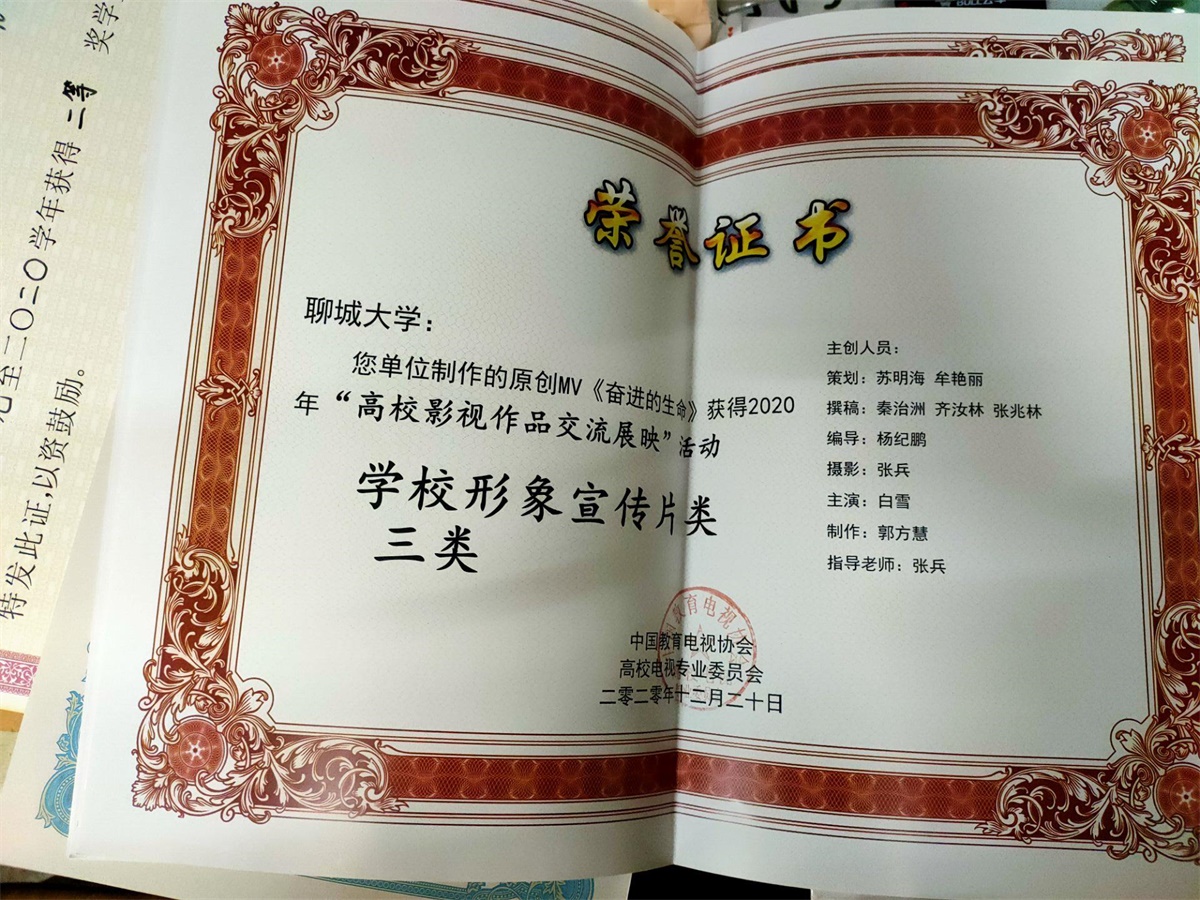 荣誉证书
聊城大学：
您单位制作的原创MV《奋进的生命》获得2020
年“高校影视作品交流展映”活动
学校形象宣传片类
三类
主创人员：
策划：苏明海 牟艳丽
撰稿：秦治洲 齐汝林 张兆林
编导：杨纪鹏
摄影：张兵
主演：白雪
制作：郭方慧
指导老师：张兵
中国教育电视协会
高校电视专业委员会
二零二零年十二月二十日
教育电视协
至二〇二〇学年获得 二等 奖学
特发此证,以资鼓励。